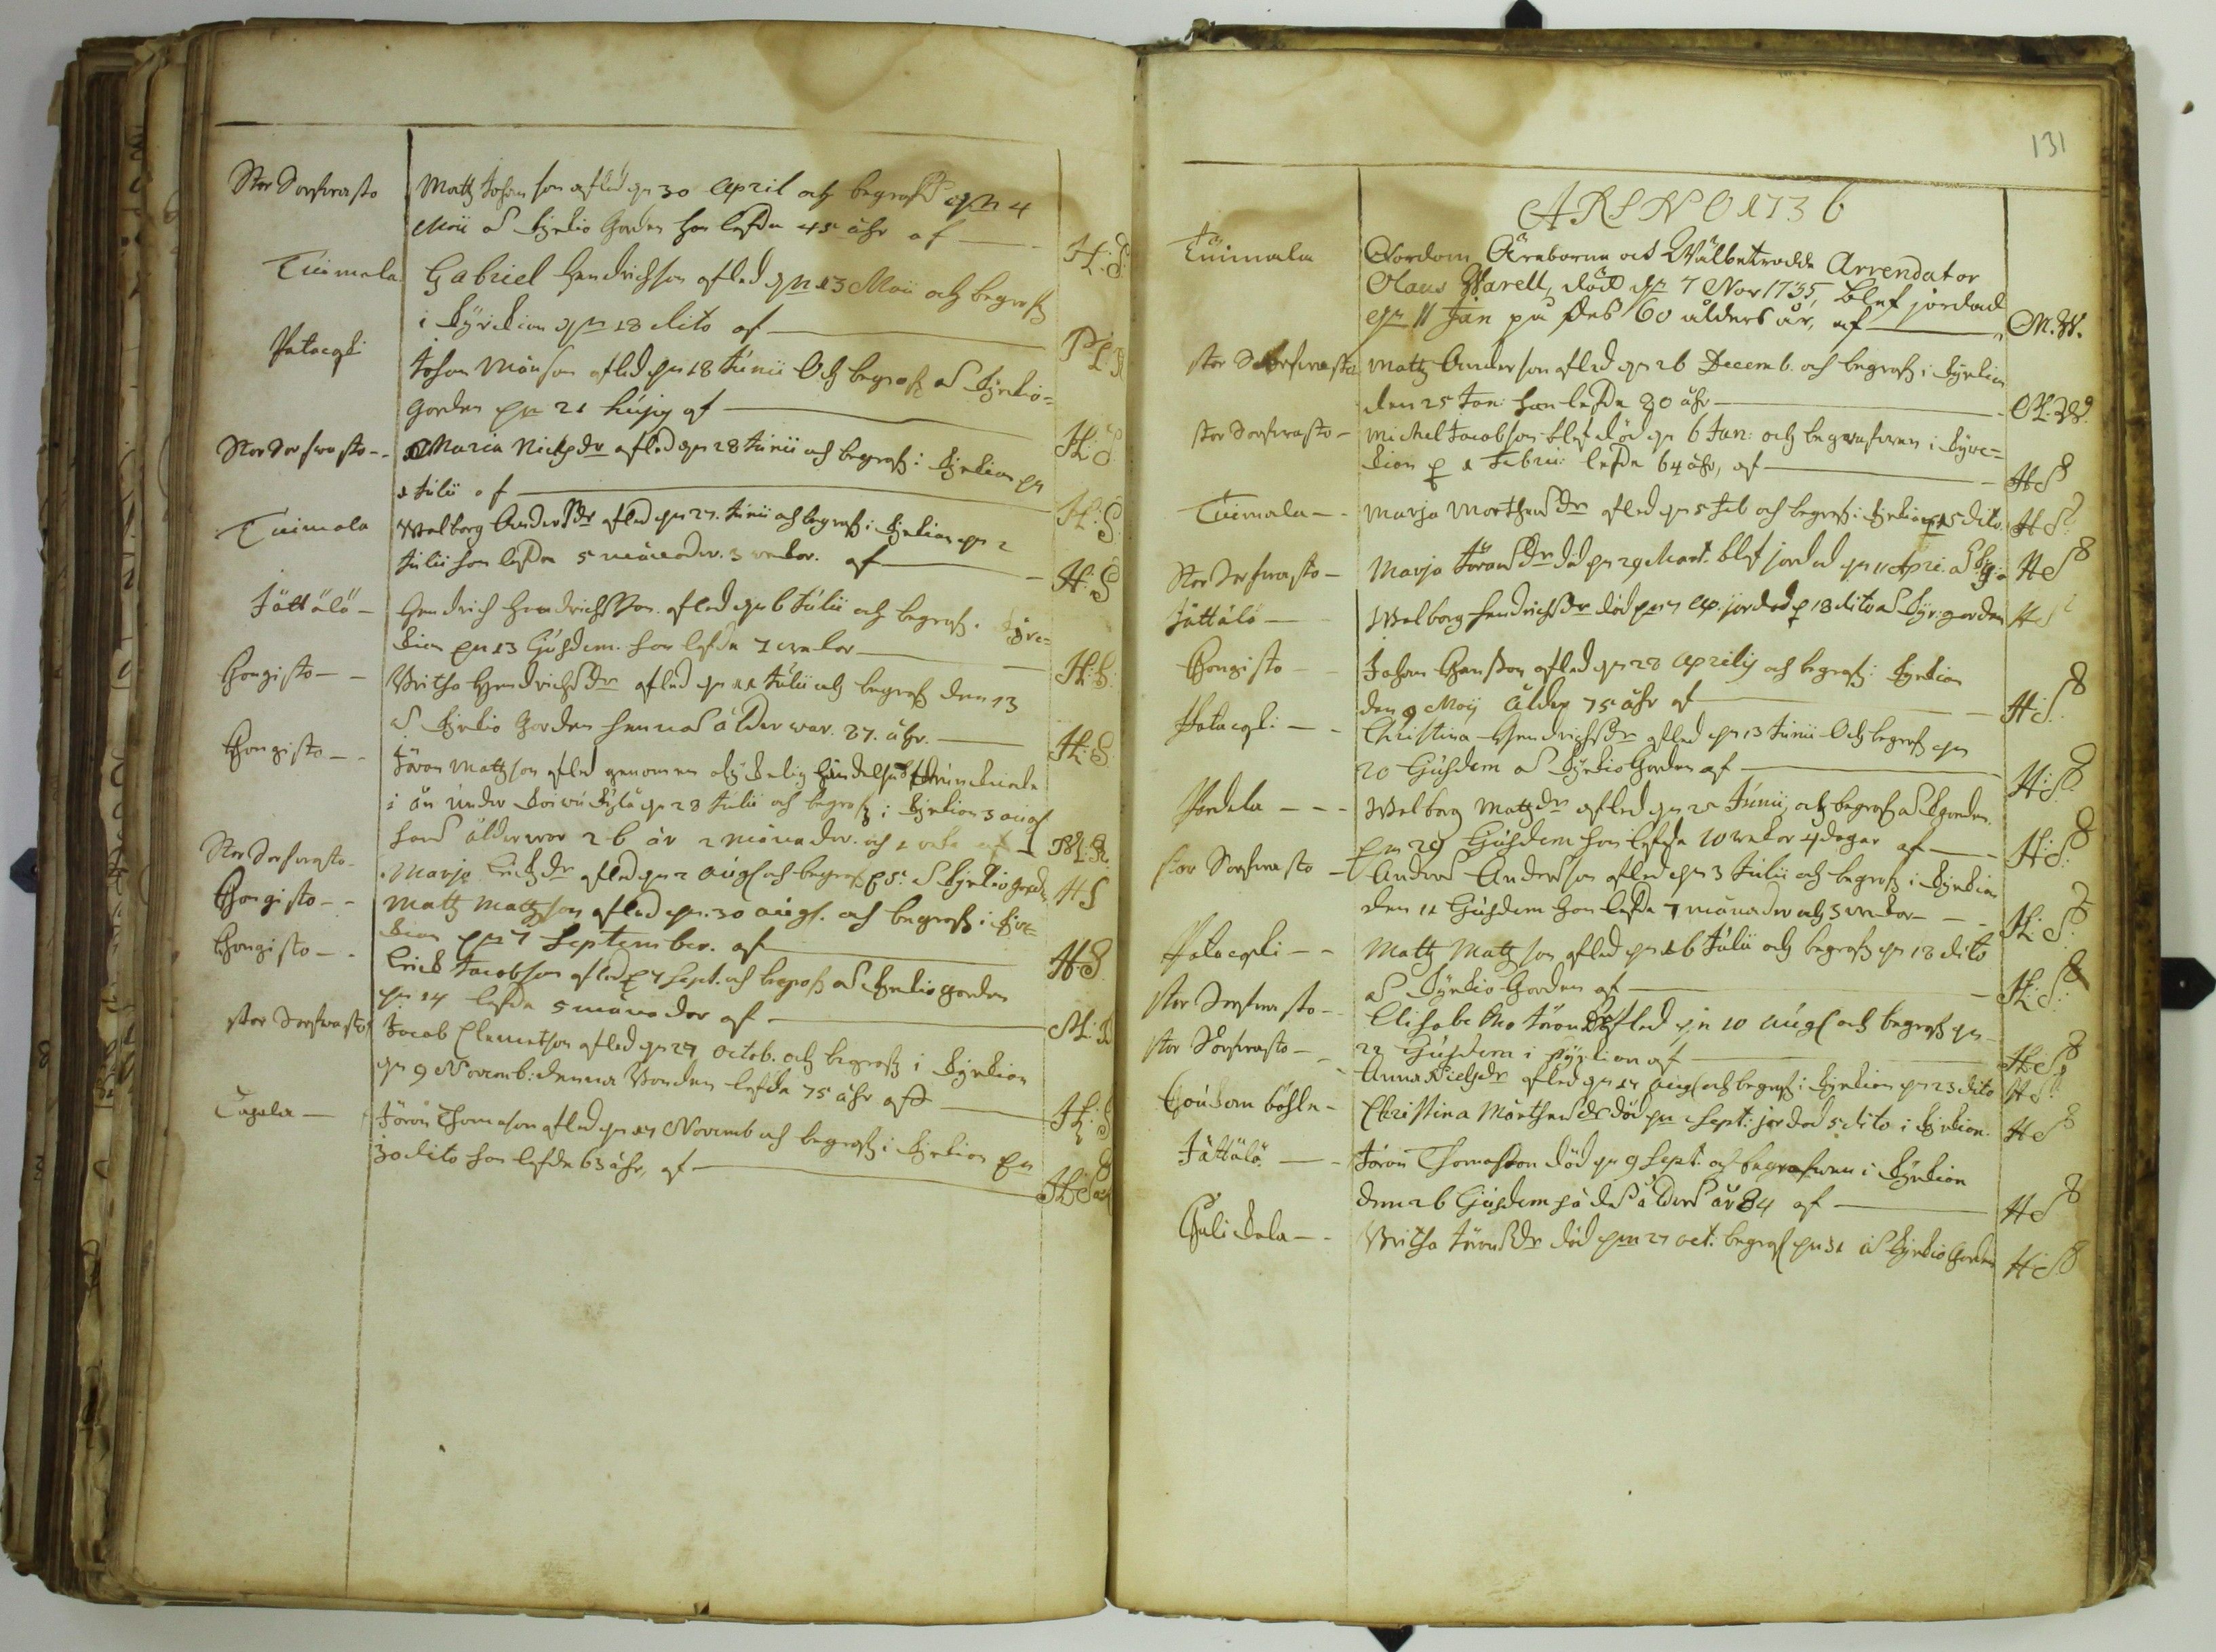 Stor Sorfwasto Matz Johanson afled den 30 April och begrafs den 4
Maii å Kyrkio Gorden han lefde 45 åhr af H: S
Tuimala Gabriel Hendrichson afled den 13 Maii och begrofs
i Kyrckian den 18 dito af
Pataegki Johan Månson afled den 18 Junii Och begrofs å Kyrkio=
gorden den 21 hujus af H: S
Stor Sorfwasto Maria Nielsdr afled den 28 Junii och begrofs i Kyrkian den
1 Julii af H: S
Tuimala Walborg Andersdr afled den 27. Junii och begrofs i Kyrkian den 2
Julii hon lefde 5 månader. 3 wekor. af H: S
Jättälö Hendrich Hendrichsson afled den 6 Julii och begrofs i Kyrc=
kian den 13 Ejusdem. han lefde 7 wekor H: S
Hongisto Britha Hendrichsdr afled den 11 Julii och begrofs den 13
å Kyrkio Gorden hennas ålder war. 27. åhr. H: S
Hongisto Jöran Mattzson afled genom en olyckelig händelse drunknade
i ån under den 28 Julii och begrofs i Kyrkian 3 aug
hans ålder war 26 år 2 månader. och 1 weka af
Stor Sorfwasto Marja Erichsdr afled den 2 aug och begrofs 5. å Kyrkio gorden H S
Hongisto Matz Matzson afled den 30 aug. och begrofs i Kirc=
kian den 7 September. af H S
Hongisto Erich Jacobson afled 7 Sept. och begrofs å Kyrkio gorden
den 14 lefde 5 månader af
Stor Sorfwasto Jacob Clemetson afled den 27 octob. och begrofs i Kyrkian
den 9 Novemb: denna Bonden lefde 75 åhr af H: S
Tapala Jöran Thomason afled den 17 Novemb och begrofs i Kyrkian den
30 dito han lefde 63 åhr, af
131
ARS N O 1736
Tuimala Wordom Äreborne och Wälbetrodde Arrendator
Olaus Warell, död den 7 Nov 1735, blef jordad
den 11 Jan på des 60 ålders år, af M. W.
Stor Sorfwasto Matz Anderson afled den 26 Decemb. och begrofs i Kyrkian
den 25 Jan: han lefde 80 åhr
Stor Sorfwasto Michel Jacobson blef död den 6 Jan: och begrafwen i Kyrc=
kian 1 Februi: lefde 64 åhr, af H S
Tuimala Marja Morthensdr afled den 5 Feb och begrofs i Kyrkian 15 dito. H S
Stor Sorfwasto Marja Jöransdr död den 29 Mart. blef jordad den 11 Apri. H S
Jättälö Walborg Hendrichsdr död den 7 Ap. jordad 18 dito å Kyr: gorden H S
Hongisto Johan Hansson afled den 28 Aprilis och begrofs i Kyrkian
den 9 Maij ålder 75 åhr af H: S
Pataegki Christina Hendrichsdr afled den 13 Junii Och begrofs den
20 Ejusdem å Kyrkio Gorden af H: S
Pardala Walborg Matzdr afled den 25 Junii och begrofs å Kgorden.
den 29 Ejusdem hon lefde 10 wekor 4 dagar af H: S
Stor Sorfwasto Anders Anderson afled den 3 Julii och begrofs i Kyrkian
den 11 Ejusdem han lefde 7 månader och 3 wekor H: S
Pataegki Matz Matzson afled den 16 Julii och begrofs den 18 dito
å Kyrkio Gorden af H: S
Stor Sorfwasto Elisabe tha Jöransdr afled den 10 aug och begrofs den
22 Ejusdem i Kyrkian af H: S
Stor Sorfwasto Anna Nielsdr afled den 17 aug och begrofs i Kyrkian den 23 dito H S
Christina Mårthensdr död den 1 Sept: jordad 5 dito i Kyrkian. H S
Jättälö Jöran Thomasson död den 9 Sept. och begrafwen i Kyrkian
den 26 Ejusdem på des ålders år 84 af H S
Hulickala Britha Jöransdr död den 27 oct. begrof den 31 å Kyrkio Gorden H: S